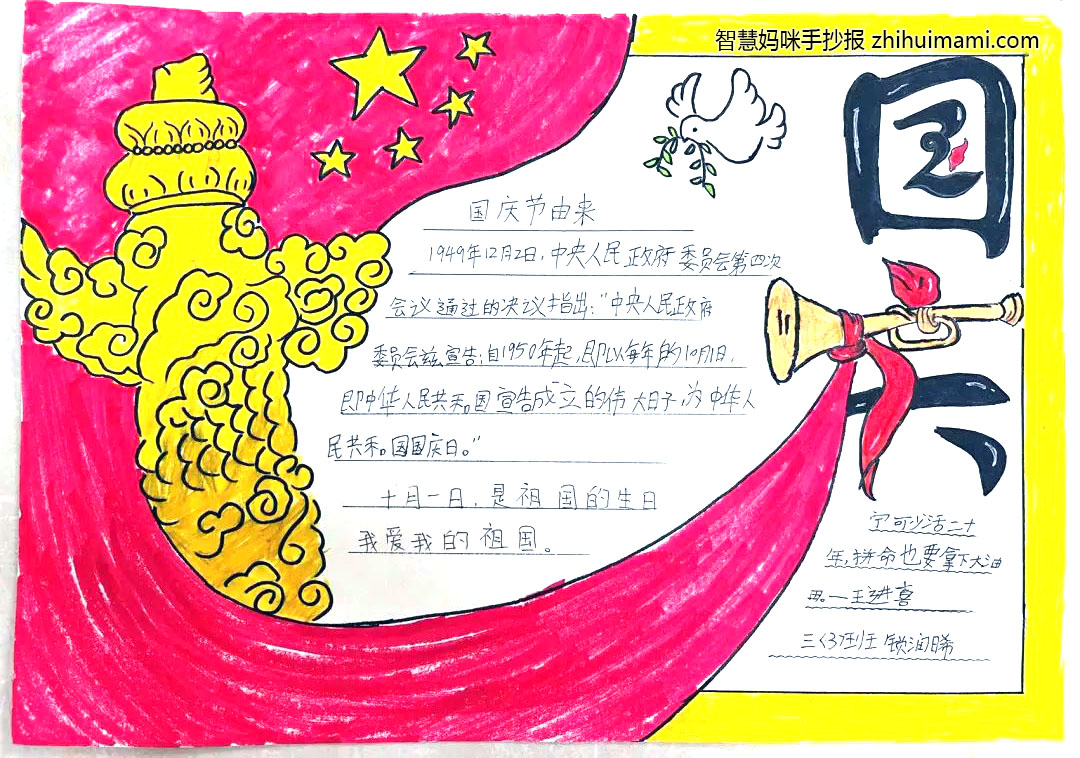 智慧妈咪手抄报 zhihuimami.com
国
六
国庆节由来
1949年12月2日，中央人民政府委员会第四次
会议通过的决议指出："中央人民政府
委员会兹宣告：自1950年起，即以每年的10月1日，
即中华人民共和国宣告成立的伟大日子，为中华人
民共和国国庆日。"
十月一日，是祖国的生日
我爱我的祖国。
宁可少活二十
年，拼命也要拿下大油
田。一王进喜
三〈3〉班 锁润晞